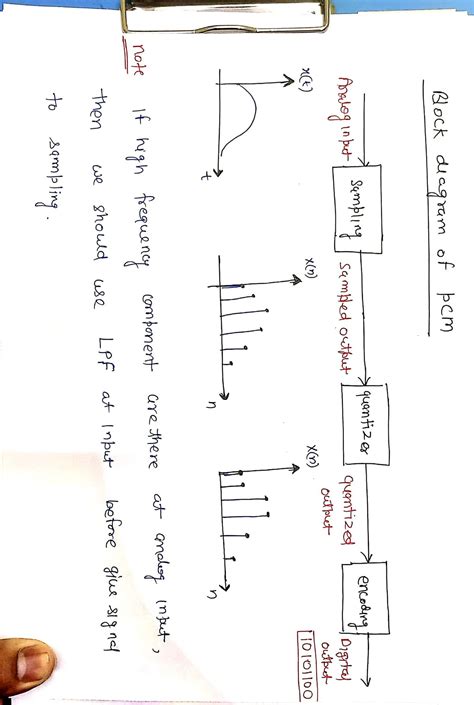 Block diagram of pcm
Analog input
sampling
Sampled output
quantizer
quantized
output
encoding
Digital
output
10101100
x(t)
t
x(n)
n
x(n)
n
note If high frequency component are there at analog input,
then we should use LPF at input before give signal
to sampling.